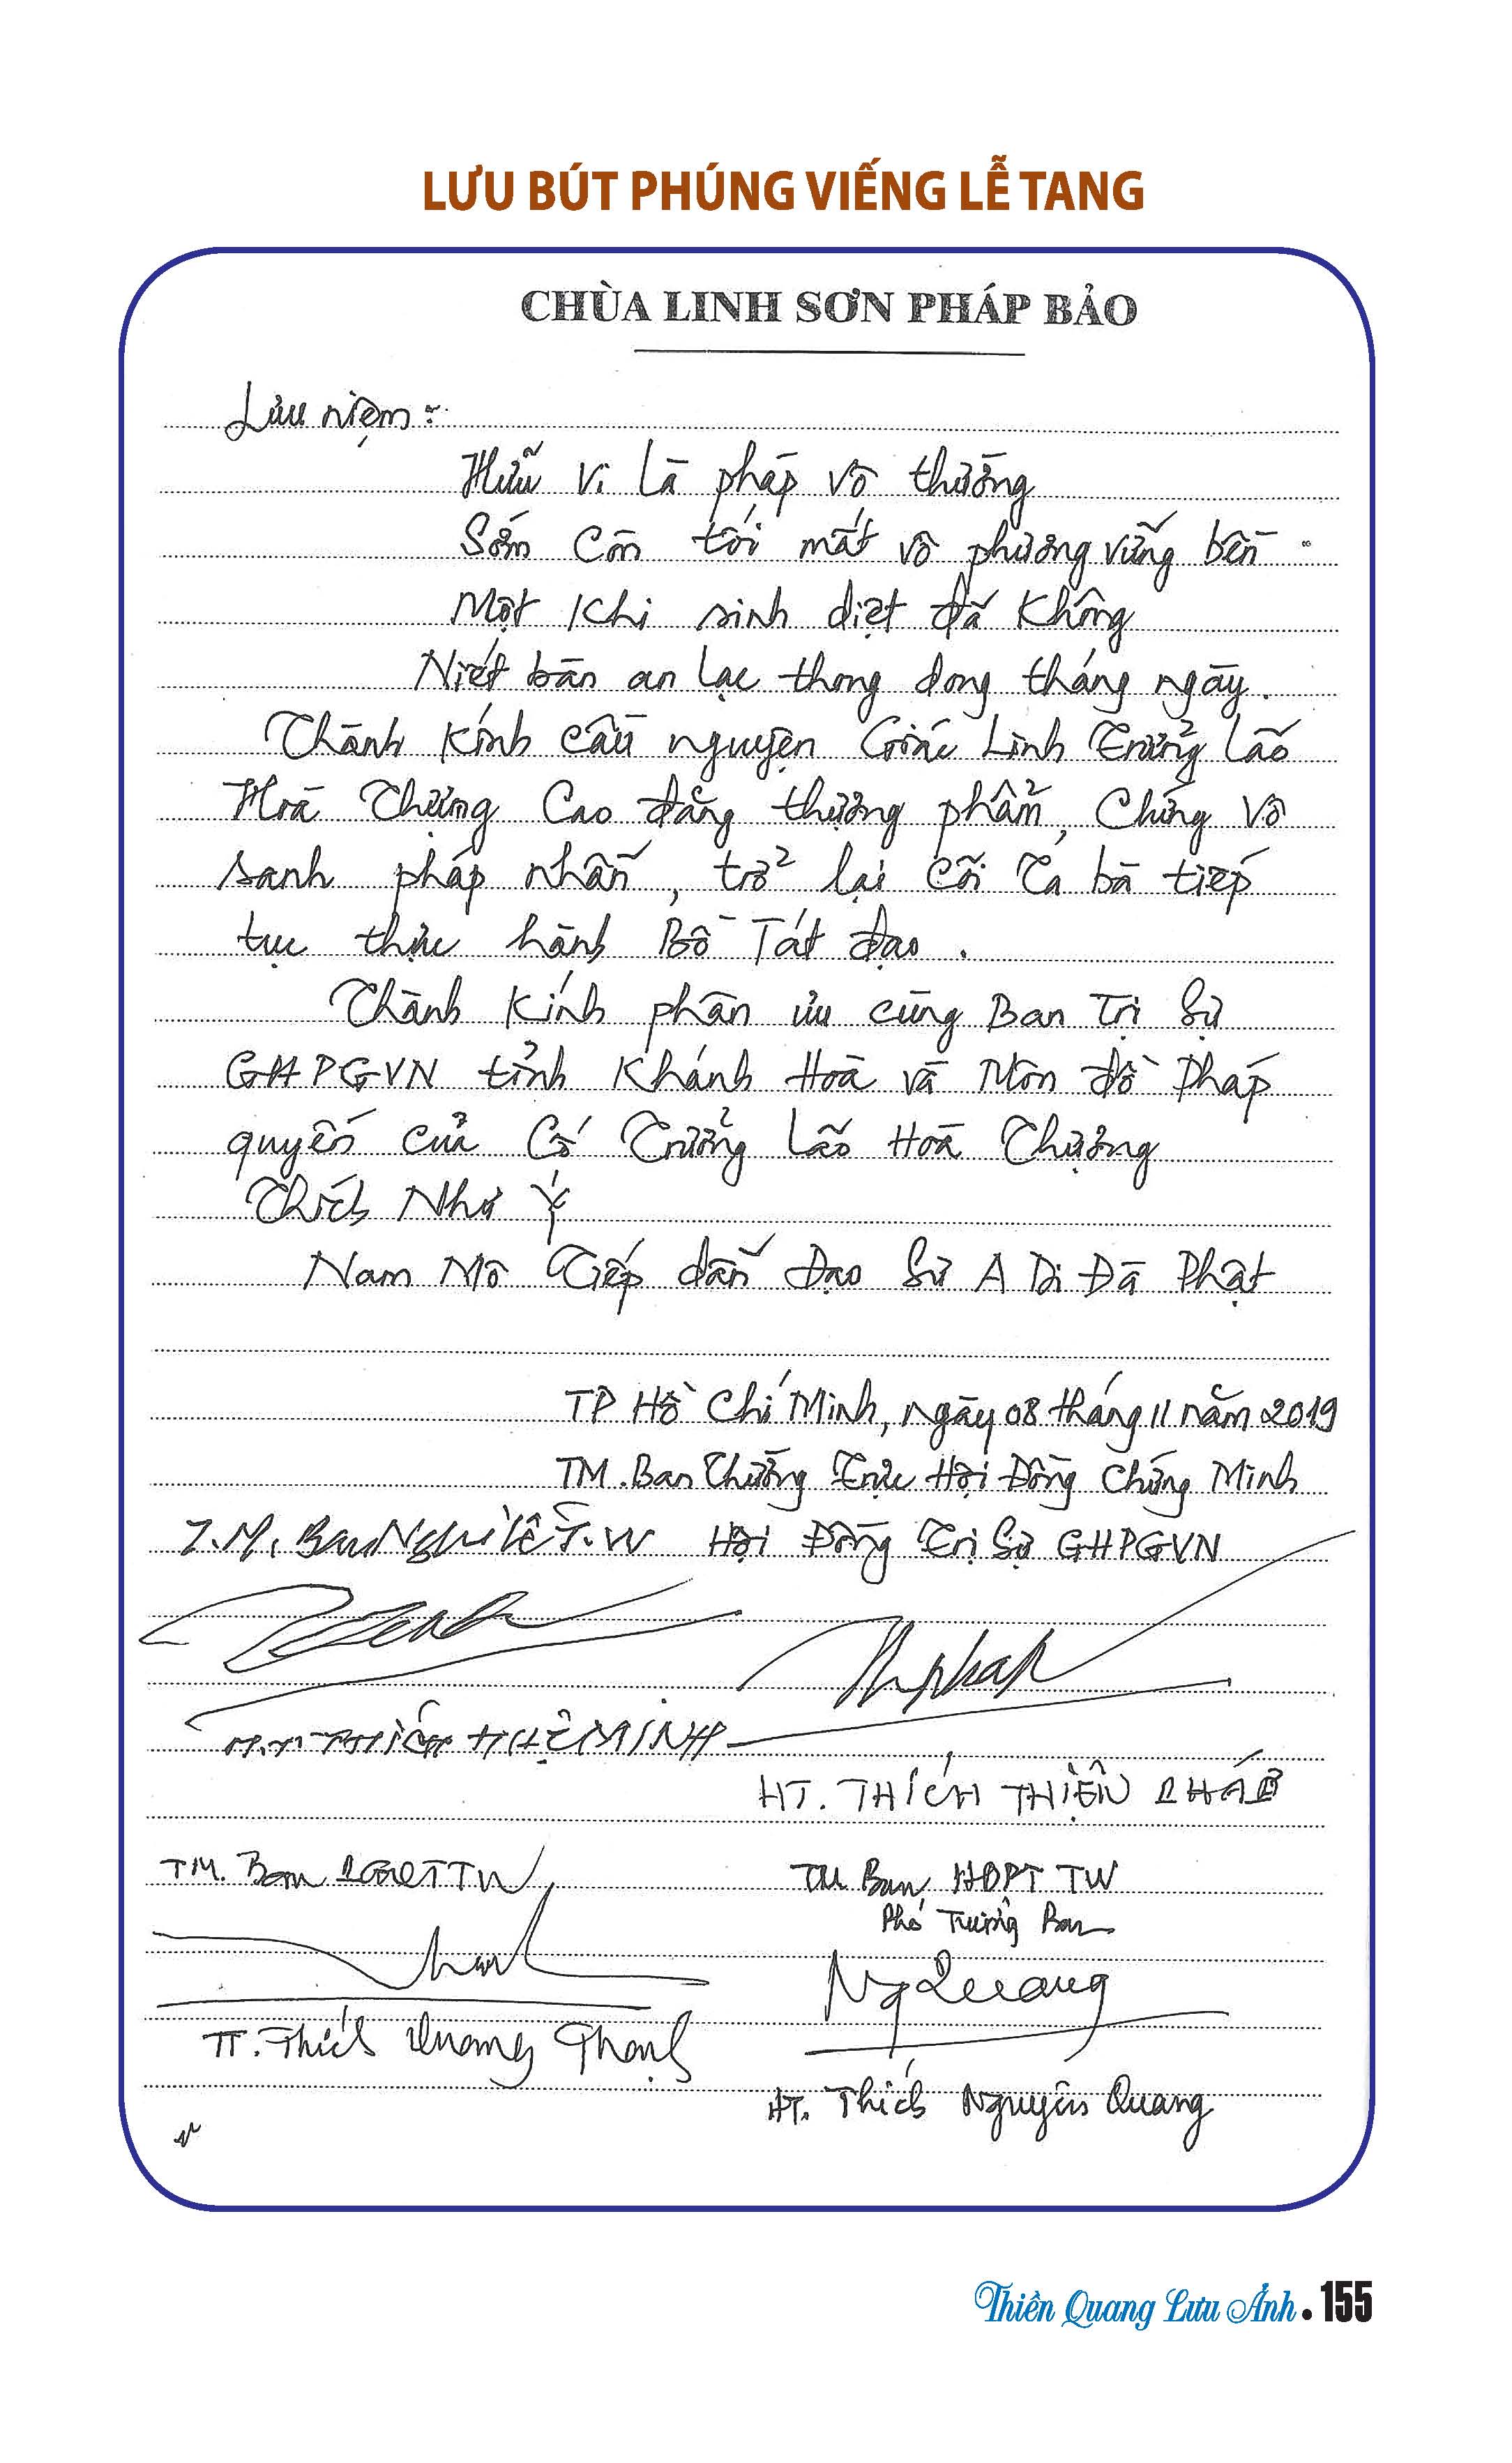 LƯU BÚT PHÚNG VIẾNG LỄ TANG
CHÙA LINH SƠN PHÁP BẢO
Lưu niệm:
Hữu vi là pháp vô thường
Sớm còn tối mất vô phương vững bền.
Một khi sinh diệt đã không
Niết bàn an lạc thong dong tháng ngày.
Thành kính cầu nguyện Giác Linh Trưởng Lão
Hoà Thượng Cao đăng thượng phẩm, Chứng Vô
sanh pháp nhẫn, trở lại cõi Ta bà tiếp
tục thực hành Bồ Tát đạo.
Thành kính phân ưu cùng Ban Trị Sự
GHPGVN tỉnh Khánh Hoà và Môn đồ Pháp
quyến của Cố Trưởng Lão Hoà Thượng
Thích Như Ý
Nam Mô Tiếp dẫn Đạo Sư A Di Đà Phật
TP Hồ Chí Minh, ngày 08 tháng 11 năm 2019
TM. Ban Thường Trực Hội Đồng Chứng Minh
T.M. Ban Nghi lễ T.W Hội Đồng Trị Sự GHPGVN
THÍCH HUỆ MINH
HT. THÍCH THIỆN PHÁP
TM. Ban TTW
TM Ban HDPT TW
Phó Trưởng Ban
NgQuang
TT. Thích Quang Thạnh
HT. Thích Nguyên Quang
Thiền Quang Lưu Ảnh • 155